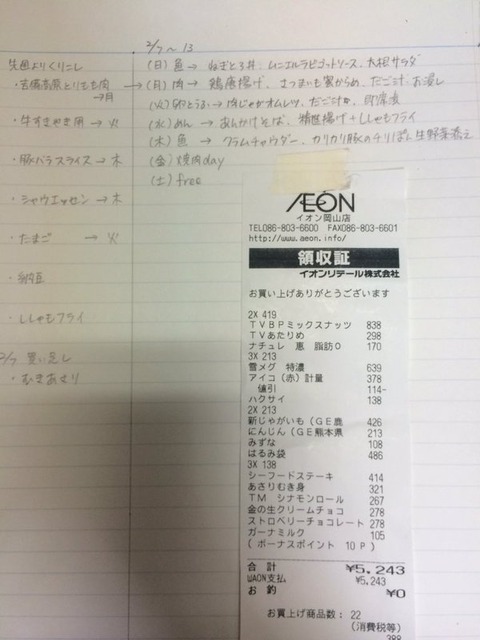 2/7〜13
先週よりくりこし
・吉備高原とりもも肉→月
・牛すきやき用→火
・豚バラスライス→木
・シャウエッセン→木
・たまご→火
・納豆
・ししゃもフライ
2/7 買い足し
・むきあさり
(日)魚→ねぎとろ丼、ムニエルラビゴットソース、大根サラダ
(月)肉→鶏唐揚げ、さつまいも蜜からめ、だご汁、お浸し
(火)卵とうふ→肉じゃがオムレツ、だご汁、即席漬
(水)めん→あんかけそば、ししゃもフライ
(木)魚→クラムチャウダー、カリカリ豚のチリぽん生野菜添え
(金)焼肉day
(土)free
ÆON
イオン岡山店
TEL086-803-6600 FAX086-803-6601
http://www.aeon.info/
領収証
イオンリテール株式会社
お買い上げありがとうございます
2X 419
TVBPミックスナッツ 838
TVあたりめ 298
ナチュレ 恵 脂肪0 170
3X 213
雪メグ 特濃 639
アイコ(赤)計量 378
値引 114-
ハクサイ 138
2X 213
新じゃがいも(GE鹿 426
にんじん(GE熊本県 213
みずな 108
はるみ袋 486
3X 138
シーフードステーキ 414
あさりむき身 321
TM シナモンロール 267
金の生クリームチョコ 278
ストロベリーチョコレート 278
ガーナミルク 105
(ボーナスポイント 10P)
合計 ¥5,243
WAON支払 ¥5,243
お釣 ¥0
お買上げ商品数:22
(消費税等)
388